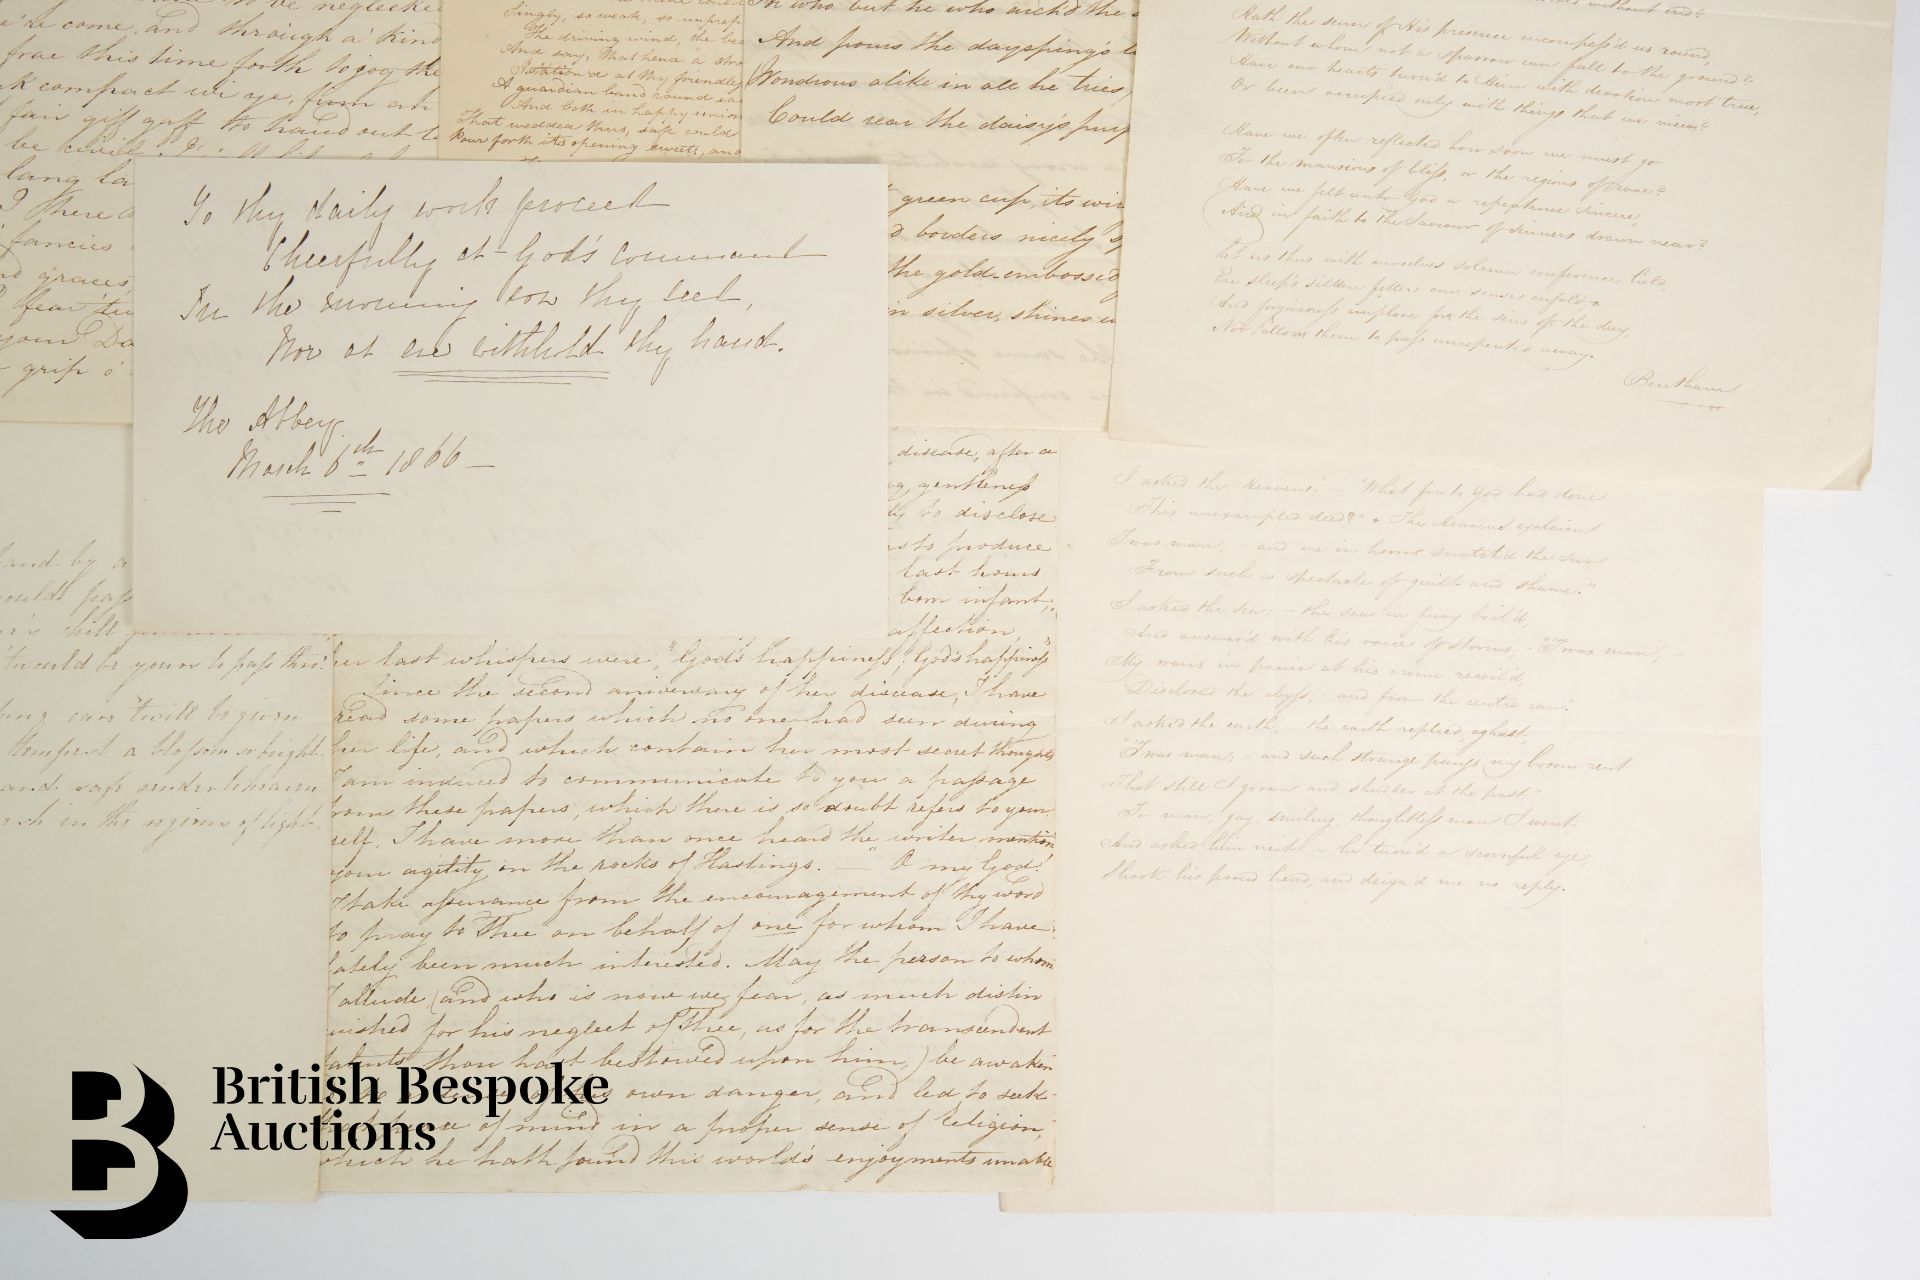 to be neglecke
e're come, and through a' kind
frae this time forth to jog the
k compact wi' ye, firm an
fair giff gaff to hand out
be civil
lang la
I there
fancies
graces,
I fear
your Da
grip o'
Singly, so weak, so
The driving wind, the
And say, that hence a
at thy friendly
A guardian band round
And both in happy union
That wedded thus, safe could
Pour forth its opening sweets, and
who but he who arch'd the
And pours the dayspring's
Wondrous alike in all he tries,
Could rear the daisy's purp
green cup, its wir
borders nicely
the gold-embossed
in silver, shines
without end?
Hath the sum of His presence encompass'd us round,
Without whom not a sparrow can fall to the ground?
Have our hearts turn'd to Him with devotion most true,
Or been occupied only with things that we view?
Have we often reflected how soon we must go
To the mansions of bliss, or the regions of woe?
Have we felt unto God a repentance sincere,
And in faith to the Saviour of sinners drawn near?
Let us thus with ourselves solemn conference hold,
Ere sleep's silken fetters our senses enfold,
And forgiveness implore for the sins of the day,
Nor allow them to pass unrepented away.
Bentham
To thy daily work proceed
Cheerfully at God's command
In the morning sow thy seed,
Nor at eve withhold thy hand.
The Abbey
March 6th 1866
disease, after a
gentleness
to disclose
to produce
last hours
born infant,
affection,
her last whispers were, "God's happiness! God's happiness"
Since the second aniversary of her disease, I have
read some papers which no one had seen during
her life, and which contain her most secret thoughts
I am induced to communicate to you a passage
from these papers, which there is so doubt refers to your
self, I have more than once heard the writer mention
your agility on the rocks of Hastings. — "O my God!
I take assurance from the encouragement of thy word
to pray to Thee on behalf of one for whom I have
lately been much interested. May the person to whom
I allude (and who is now we fear, as much distin
uished for his neglect of Thee, as for the transcendent
talents thou hast bestowed upon him,) be awaken
own danger, and led to seek
of mind in a proper sense of Religion,
which he hath found this world's enjoyments unable
hand by a
would pass
chill
'twould be yours to pass thro'
'twill be given
tempest a blossom so bright
and safe under heaven
in the regions of light.
I asked the Heavens; — "What foe to God had done
This unexampled deed?" The Heavens exclaim
'Twas man; — and we in horror snatch'd the sun
From such a spectacle of guilt and shame."
I asked the sea; — the sea in fury boil'd,
And answer'd with his voice of storms, — "'Twas man; —
My waves in panic at his crime recoil'd,
Disclosed the abyss, — and from the centre ran."
I asked the earth; the earth replied, aghast,
"'Twas man; — and such strange pangs my bosom rent
That still I groan and shudder at the past."
To man, gay, smiling, thoughtless man I went
And asked him next — he turn'd a scornful eye,
Shook his proud head, and deign'd me no reply.
British Bespoke
Auctions